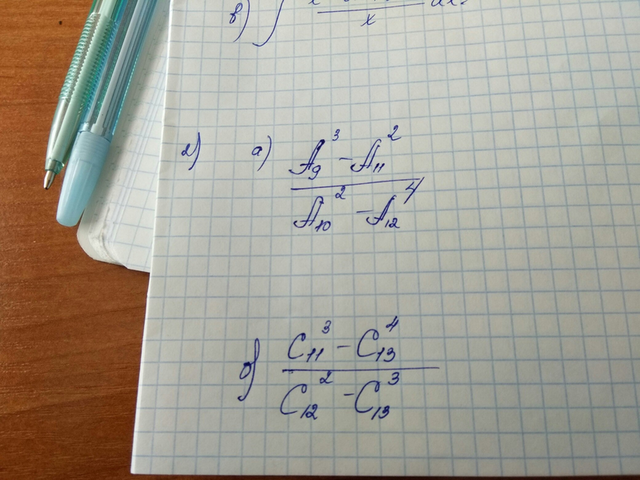 в) ∫ x dx
2) а) A₉³ − A₁₁²
A₁₀² − A₁₂⁴
б) C₁₁³ − C₁₃⁴
C₁₂² − C₁₃³